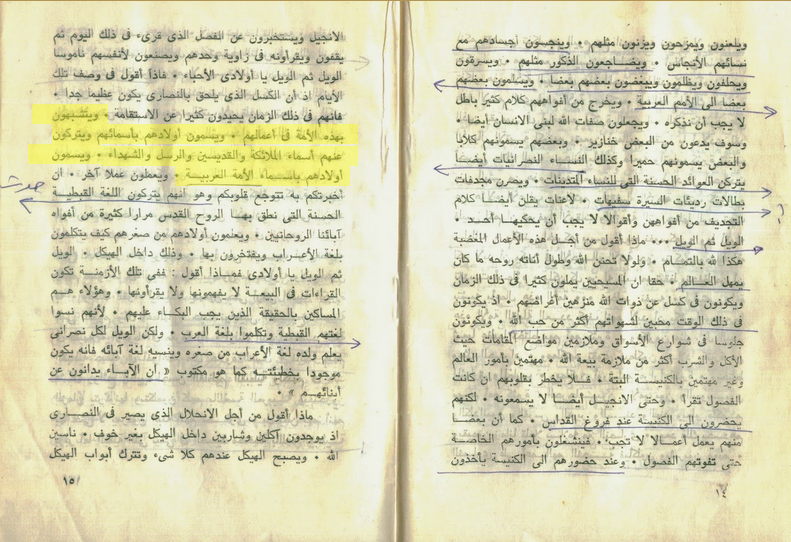 ويلعنون ويمزحون ويزنون مثلهم • وينجسون أجسادهم مع
نسائهم الأنجاس • ويضاجعون الذكور مثلهم • ويسرقون
ويحلفون ويظلمون ويبغضون بعضهم بعضا • ويسلمون بعضهم
بعضا الى الأمم العربية • ويخرج من أفواههم كلام كثير باطل
لا يجب أن نذكره • ويجعلون صفات الله لبنى الانسان أيضا •
وسوف يدعون من البعض خنازير • وبعضهم يسمونهم كلابا
والبعض يسمونهم حميرا وكذلك النساء النصرانيات أيضا
يتركن العوائد الحسنة التى للنساء المتدينات • ويصرن مجدفات
بطالات رديئات السيرة سفيهات • لاعنات يقلن أيضا كلام
التجديف من أفواههن وأقوالا لا يجب أن يحكيها أحد •
الويل ثم الويل ••• ماذا أقول من أجل هذه الأعمال المغضبة
هكذا لله بالتمام • ولولا تحنن الله وطول أناته روحه ما كان
يمهل العالم • حقا ان المسيحيين يملون كثيرا فى ذلك الزمان
ويكونون فى كسل عن ذوات الله منزهين أغراضهم • اذ يكونون
فى ذلك الوقت محبين لشهواتهم أكثر من حب الله • ويكونون
جلوسا فى شوارع الأسواق وملازمين مواضع المقامات حيث
الأكل والشرب أكثر من ملازمة بيعة الله • مهتمين بأمور العالم
وغير مهتمين بالكنيسة البتة • فلا يخطر بقلوبهم ان كانت
الفصول تقرأ • وحتى الانجيل أيضا لا يسمعونه • لكنهم
يحضرون الى الكنيسة عند فروغ القداس • كما أن بعضا
منهم يعمل أعمالا لا تجب • فينشغلون بأمورهم الخاصة
حتى تفوتهم الفصول • وعند حضورهم الى الكنيسة يأخذون
١٤
الانجيل ويستخبرون عن الفصل الذى قرىء فى ذلك اليوم ثم
يقفون ويقرأونه فى زاوية وحدهم ويصنعون لأنفسهم ناموسا
الويل ثم الويل يا أولادى الأحباء • فماذا أقول فى وصف تلك
الأيام اذ أن الكسل الذى يلحق بالنصارى يكون عظيما جدا •
فانهم فى ذلك الزمان يحيدون كثيرا عن الاستقامة • ويتشبهون
بهذه الأمة فى أعمالهم • ويسمون أولادهم بأسمائهم ويتركون
عنهم أسماء الملائكة والقديسين والرسل والشهداء • ويسمون
أولادهم بأسماء الأمة العربية • ويعملون عملا آخر • ان
أخبرتكم به تتوجع قلوبكم وهو أنهم يتركون اللغة القبطية
الحسنة التى نطق بها الروح القدس مرارا كثيرة من أفواه
آبائنا الروحانيين • ويعلمون أولادهم من صغرهم كيف يتكلمون
بلغة الأعراب ويفتخرون بها • وذلك داخل الهيكل • الويل
ثم الويل يا أولادى فماذا أقول : ففى تلك الأزمنة تكون
القراءات فى البيعة لا يفهمونها ولا يقرأونها • وهؤلاء هم
المساكين بالحقيقة الذين يجب البكاء عليهم • لأنهم نسوا
لغتهم القبطية وتكلموا بلغة العرب • ولكن الويل لكل نصرانى
يعلم ولده لغة الأعراب من صغره وينسيه لغة آبائه فانه يكون
موجودا بخطيئته كما هو مكتوب « أن الآباء يدانون عن
أبنائهم » •
ماذا أقول من أجل الانحلال الذى يصير فى النصارى
اذ يوجدون آكلين وشاربين داخل الهيكل بغير خوف • ناسين
الله • ويصبح الهيكل عندهم كلا شىء وتترك أبواب الهيكل
١٥